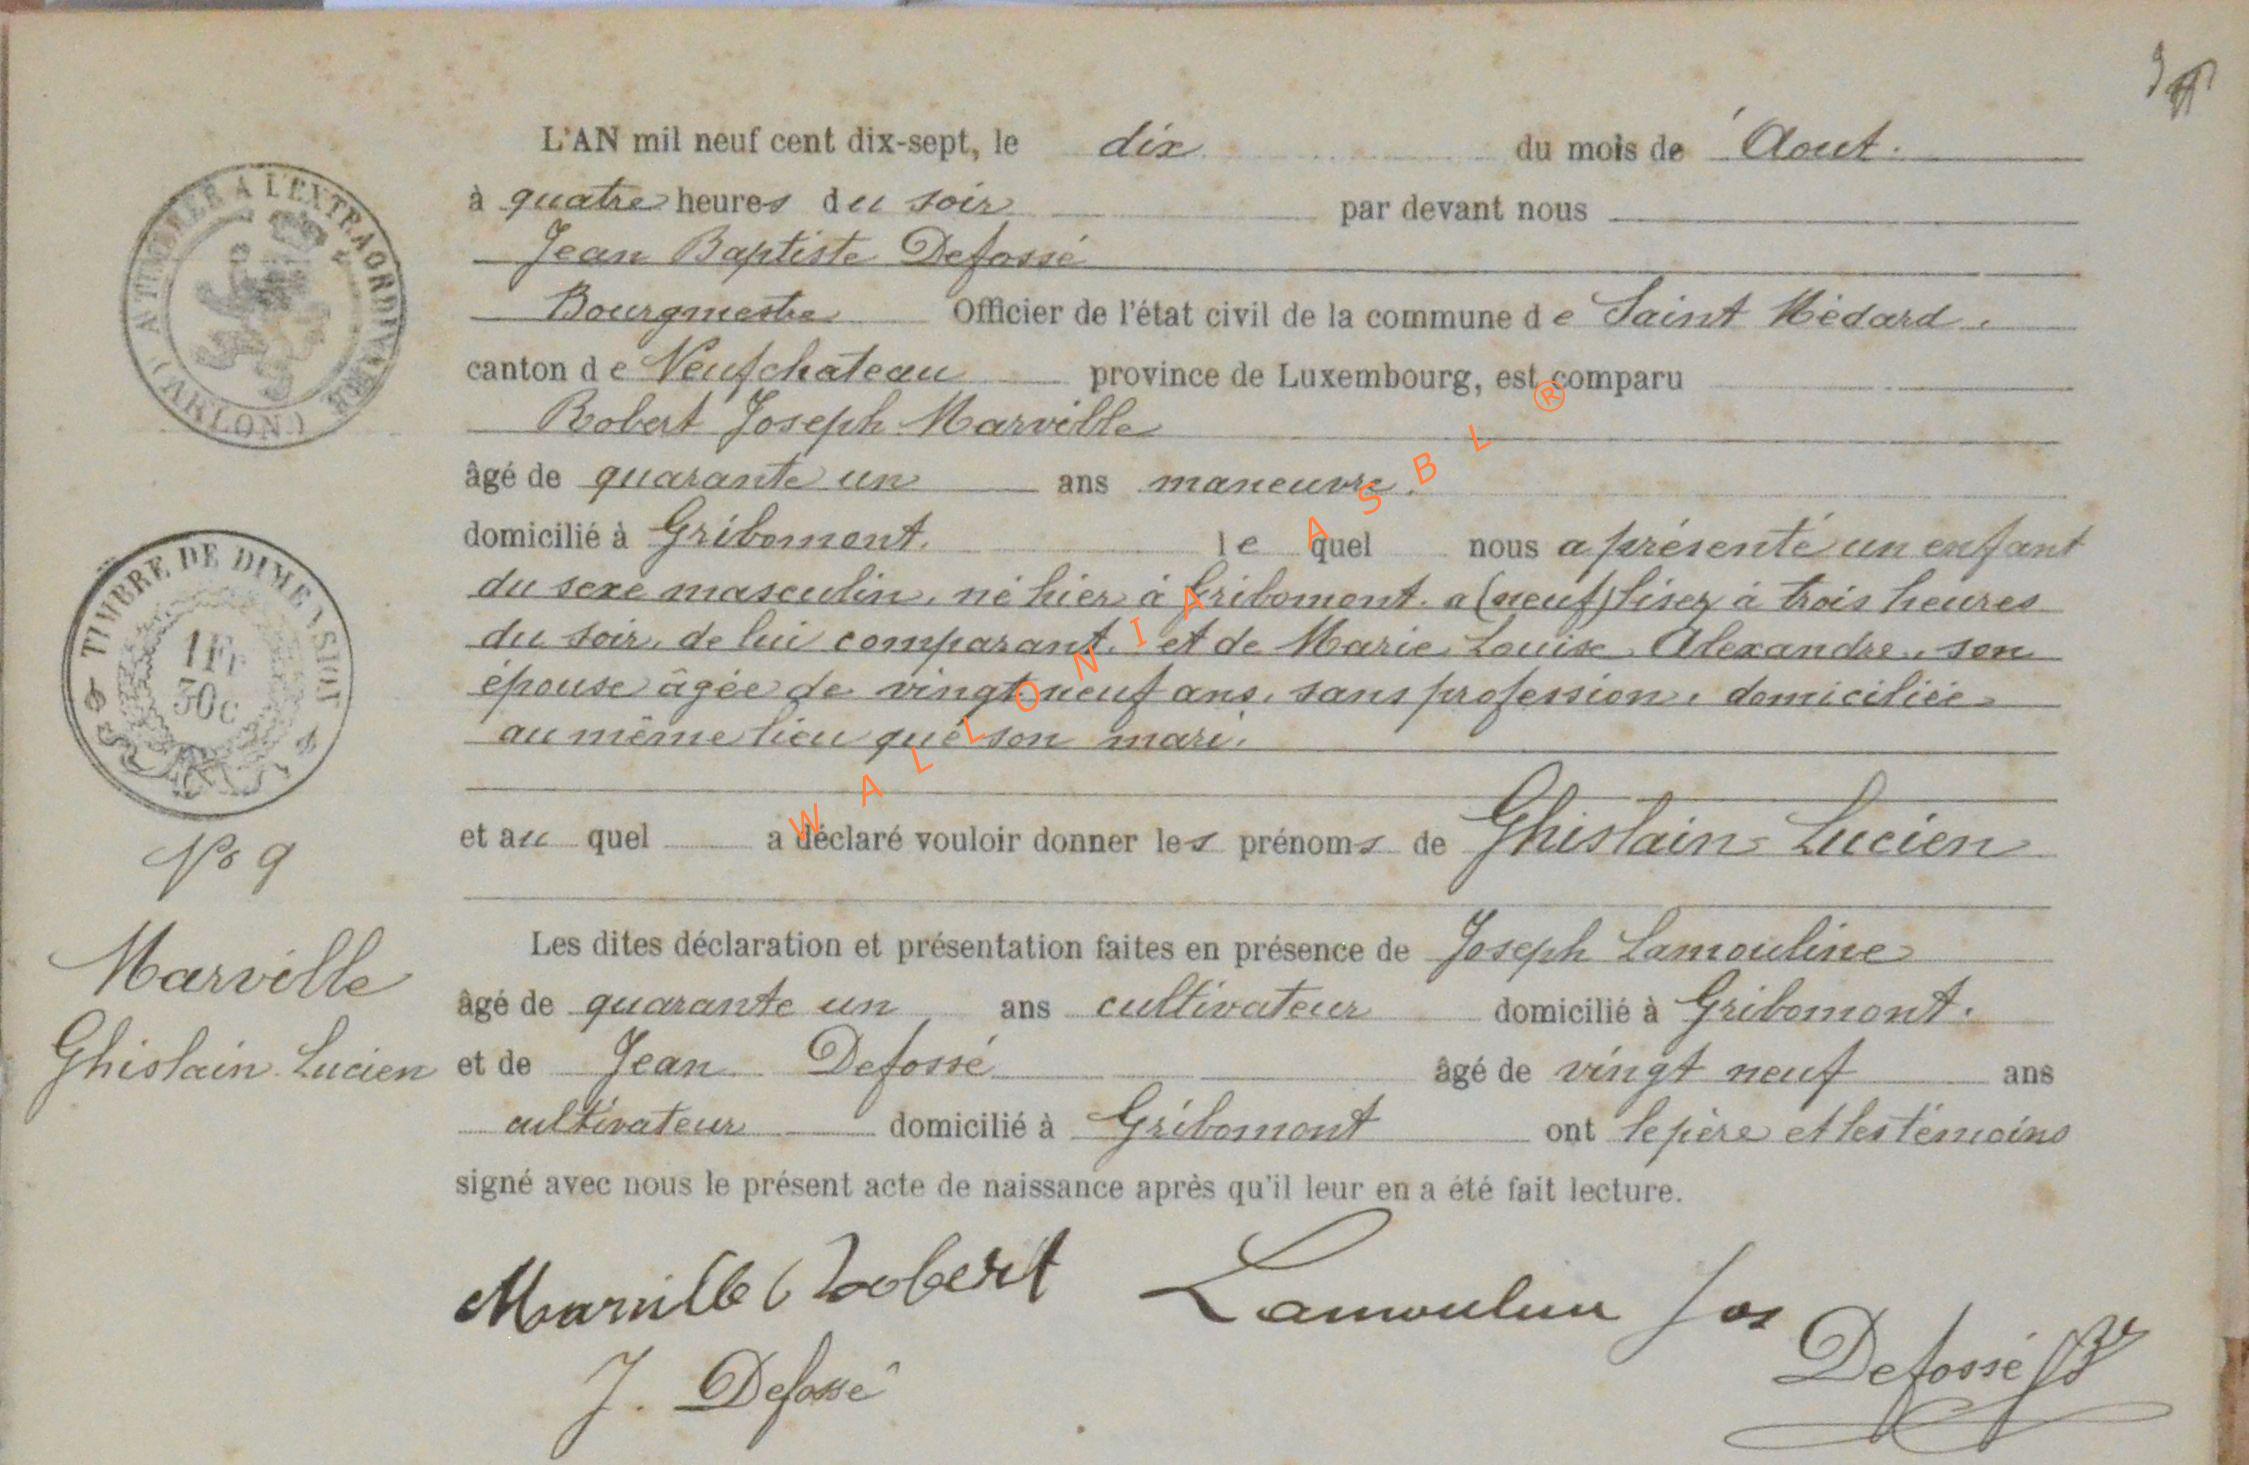 L'AN mil neuf cent dix-sept, le dix du mois de Aout.
à quatre heures du soir par devant nous
Jean Baptiste Defossé
Bourgmestre Officier de l'état civil de la commune de Saint Médard,
canton de Neufchateau province de Luxembourg, est comparu
Robert Joseph Marville
âgé de quarante un ans maneuvre.
domicilié à Gribomont. le quel nous a présenté un enfant
du sexe masculin, né hier à Gribomont. a (neuf) lisez à trois heures
du soir, de lui comparant, et de Marie, Louise, Alexandre, son
épouse âgée de vingt neuf ans, sans profession, domiciliée
au même lieu que son mari.
et au quel a déclaré vouloir donner les prénoms de Ghislain Lucien
Les dites déclaration et présentation faites en présence de Joseph Lamouline
âgé de quarante un ans cultivateur domicilié à Gribomont.
et de Jean Defossé âgé de vingt neuf ans
cultivateur domicilié à Gribomont ont le père et les témoins
signé avec nous le présent acte de naissance après qu'il leur en a été fait lecture.
Marville Robert Lamouline Jos
J. Defossé Defossé JB
A TIMBRER A L'EXTRAORDINAIRE
(ARLON)
TIMBRE DE DIMENSION
1Fr
30c
No 9
Marville
Ghislain Lucien
WALLONIA ASBL ®